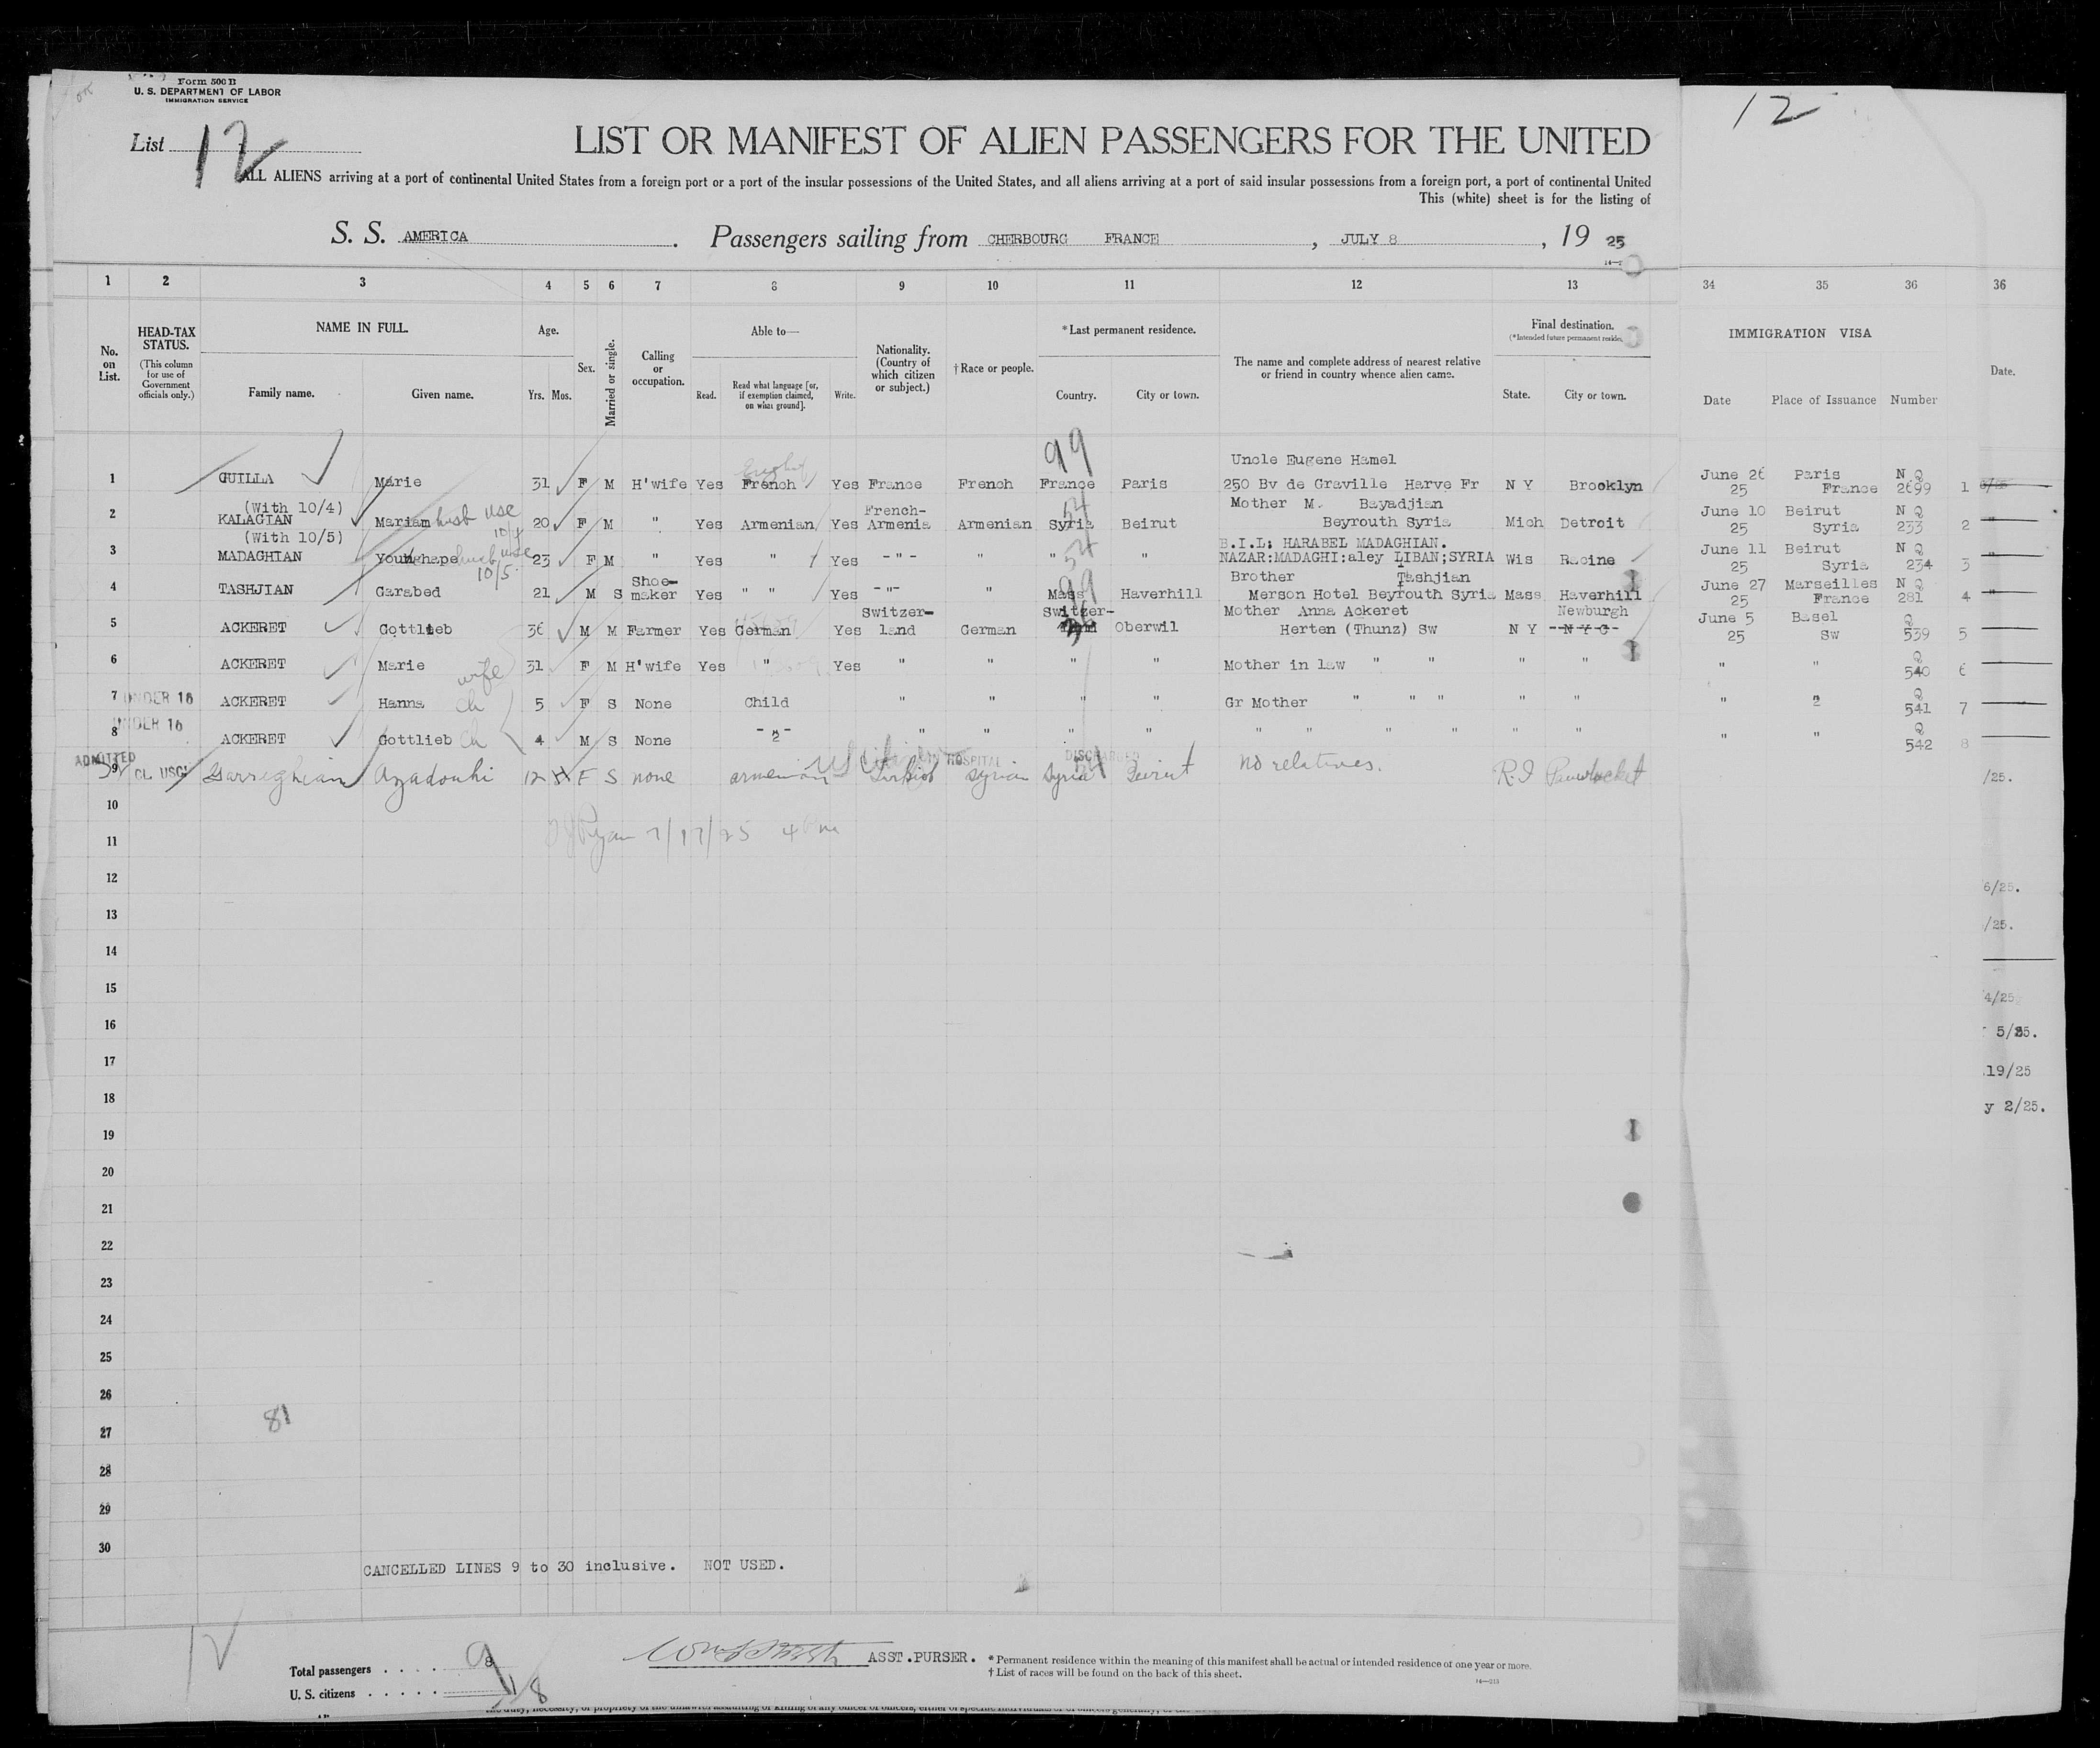 Form 500 B
U. S. DEPARTMENT OF LABOR
IMMIGRATION SERVICE
List 12
12
LIST OR MANIFEST OF ALIEN PASSENGERS FOR THE UNITED
ALL ALIENS arriving at a port of continental United States from a foreign port or a port of the insular possessions of the United States, and all aliens arriving at a port of said insular possessions from a foreign port, a port of continental United
This (white) sheet is for the listing of
S. S. AMERICA . Passengers sailing from CHERBOURG FRANCE , JULY 8 , 19 25
1 2 3 4 5 6 7 8 9 10 11 12 13 34 35 36 36
No. on List.
HEAD-TAX STATUS.
(This column for use of Government officials only.)
NAME IN FULL.
Family name. Given name.
Age.
Yrs. Mos.
Sex.
Married or single.
Calling or occupation.
Able to—
Read. Read what language [or, if exemption claimed, on what ground]. Write.
Nationality. (Country of which citizen or subject.)
†Race or people.
*Last permanent residence.
Country. City or town.
The name and complete address of nearest relative or friend in country whence alien came.
Final destination.
(*Intended future permanent residence)
State. City or town.
IMMIGRATION VISA
Date Place of Issuance Number
Date.
99
Uncle Eugene Hamel
1 GUILLA Marie 31 F M H'wife Yes French Yes France French France Paris 250 Bv de Graville Harve Fr N Y Brooklyn June 26 25 Paris France N Q 2699 1
(With 10/4)
2 KALAGIAN Mariam husb use 10/4 20 F M " Yes Armenian Yes French-Armenia Armenian Syria Beirut Mother M. Bayadjian Beyrouth Syria Mich Detroit June 10 25 Beirut Syria N Q 233 2
(With 10/5)
3 MADAGHIAN Youghape husb use 10/5 23 F M " Yes " Yes -"- " " " B.I.L: HARABEL MADAGHIAN. NAZAR:MADAGHI:aley LIBAN;SYRIA Wis Racine June 11 25 Beirut Syria N Q 234 3
4 TASHJIAN Garabed 21 M S Shoe-maker Yes " " Yes -"- " Mass Haverhill Brother Tashjian Merson Hotel Beyrouth Syria Mass Haverhill June 27 25 Marseilles France N Q 281 4
5 ACKERET Gottlieb 36 M M Farmer Yes German Yes Switzer-land German Switzer-land Oberwil Mother Anna Ackeret Herten (Thunz) Sw N Y Newburgh N Y C June 5 25 Basel Sw Q 539 5
6 ACKERET Marie wife 31 F M H'wife Yes " Yes " " " " Mother in law " " " " " " Q 540 6
7 UNDER 16 ACKERET Hanna ch 5 F S None Child " " " " Gr Mother " " " " " " " Q 541 7
8 UNDER 16 ACKERET Gottlieb ch 4 M S None -"- " " " " " " " " " " " " Q 542 8
ADMITTED IN HOSPITAL DISCHARGED
9 Garreghian Azadouhi 12 F S none armenian Turkish Syrian Syria Beirut No relatives. R.I Pawtucket /25.
10
11 Ryan 7/17/25 4 Pm
12 6/25.
13 /25.
14
15 4/25
16 5/25.
17 19/25
18 y 2/25.
19
20
21
22
23
24
25
26
27 81
28
29
30
CANCELLED LINES 9 to 30 inclusive. NOT USED.
Total passengers . . . . 9 8
U. S. citizens . . . . .
ASST.PURSER.
* Permanent residence within the meaning of this manifest shall be actual or intended residence of one year or more.
† List of races will be found on the back of this sheet.
14—213